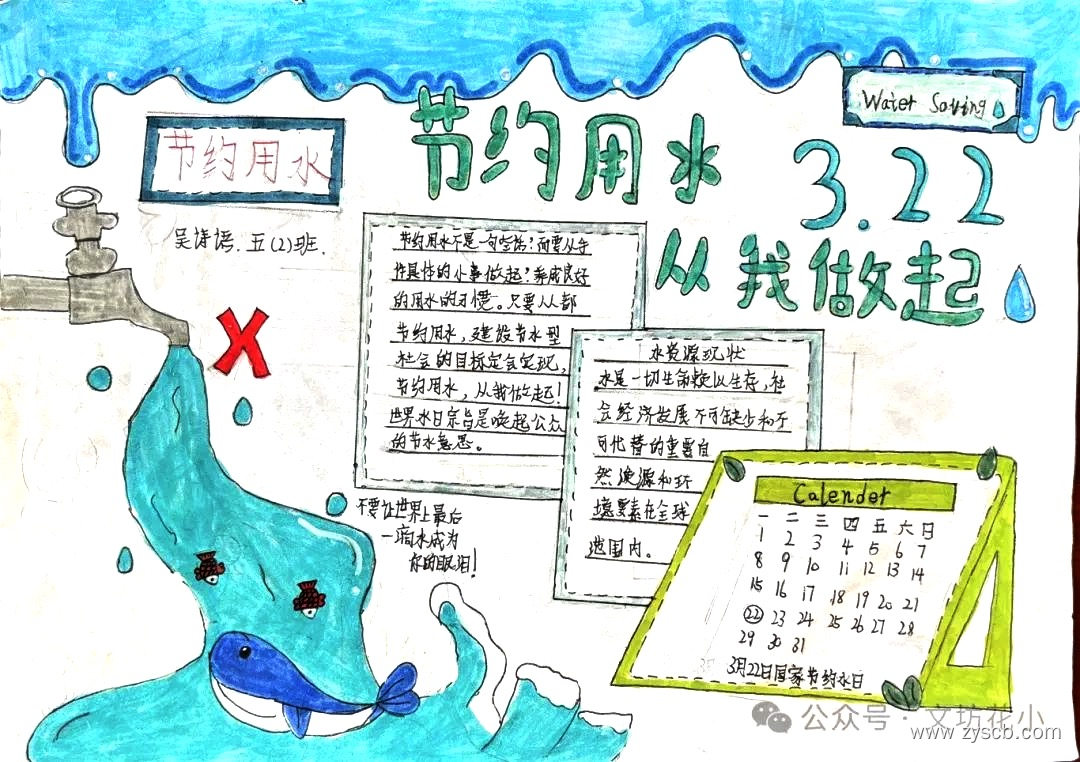 Water Saving
节约用水
节约用水
3.22
从我做起
吴诗语.五(2)班.
节约用水不是一句空话?而要从于
件具体的小事做起?养成良好
的用水的习惯。只要人人都
节约用水,建设节水型
社会的目标定会实现,
节约用水,从我做起!
世界水日宗旨是唤起公众
的节水意思。
水资源现状
水是一切生命赖以生存,社
会经济发展不可缺少和不
可代替的重要自
然资源和环
境要素在全球
范围内。
不要让世界上最后
一滴水成为
你的眼泪!
Calender
一 二 三 四 五 六 日
1 2 3 4 5 6 7
8 9 10 11 12 13 14
15 16 17 18 19 20 21
22 23 24 25 26 27 28
29 30 31
3月22日国家节约水日
公众号·文坊花小
www.zyscb.com